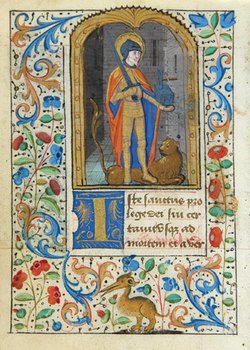 Iste sanctus pro
lege dei sui cer
tauit usq ad
mortem et a ver